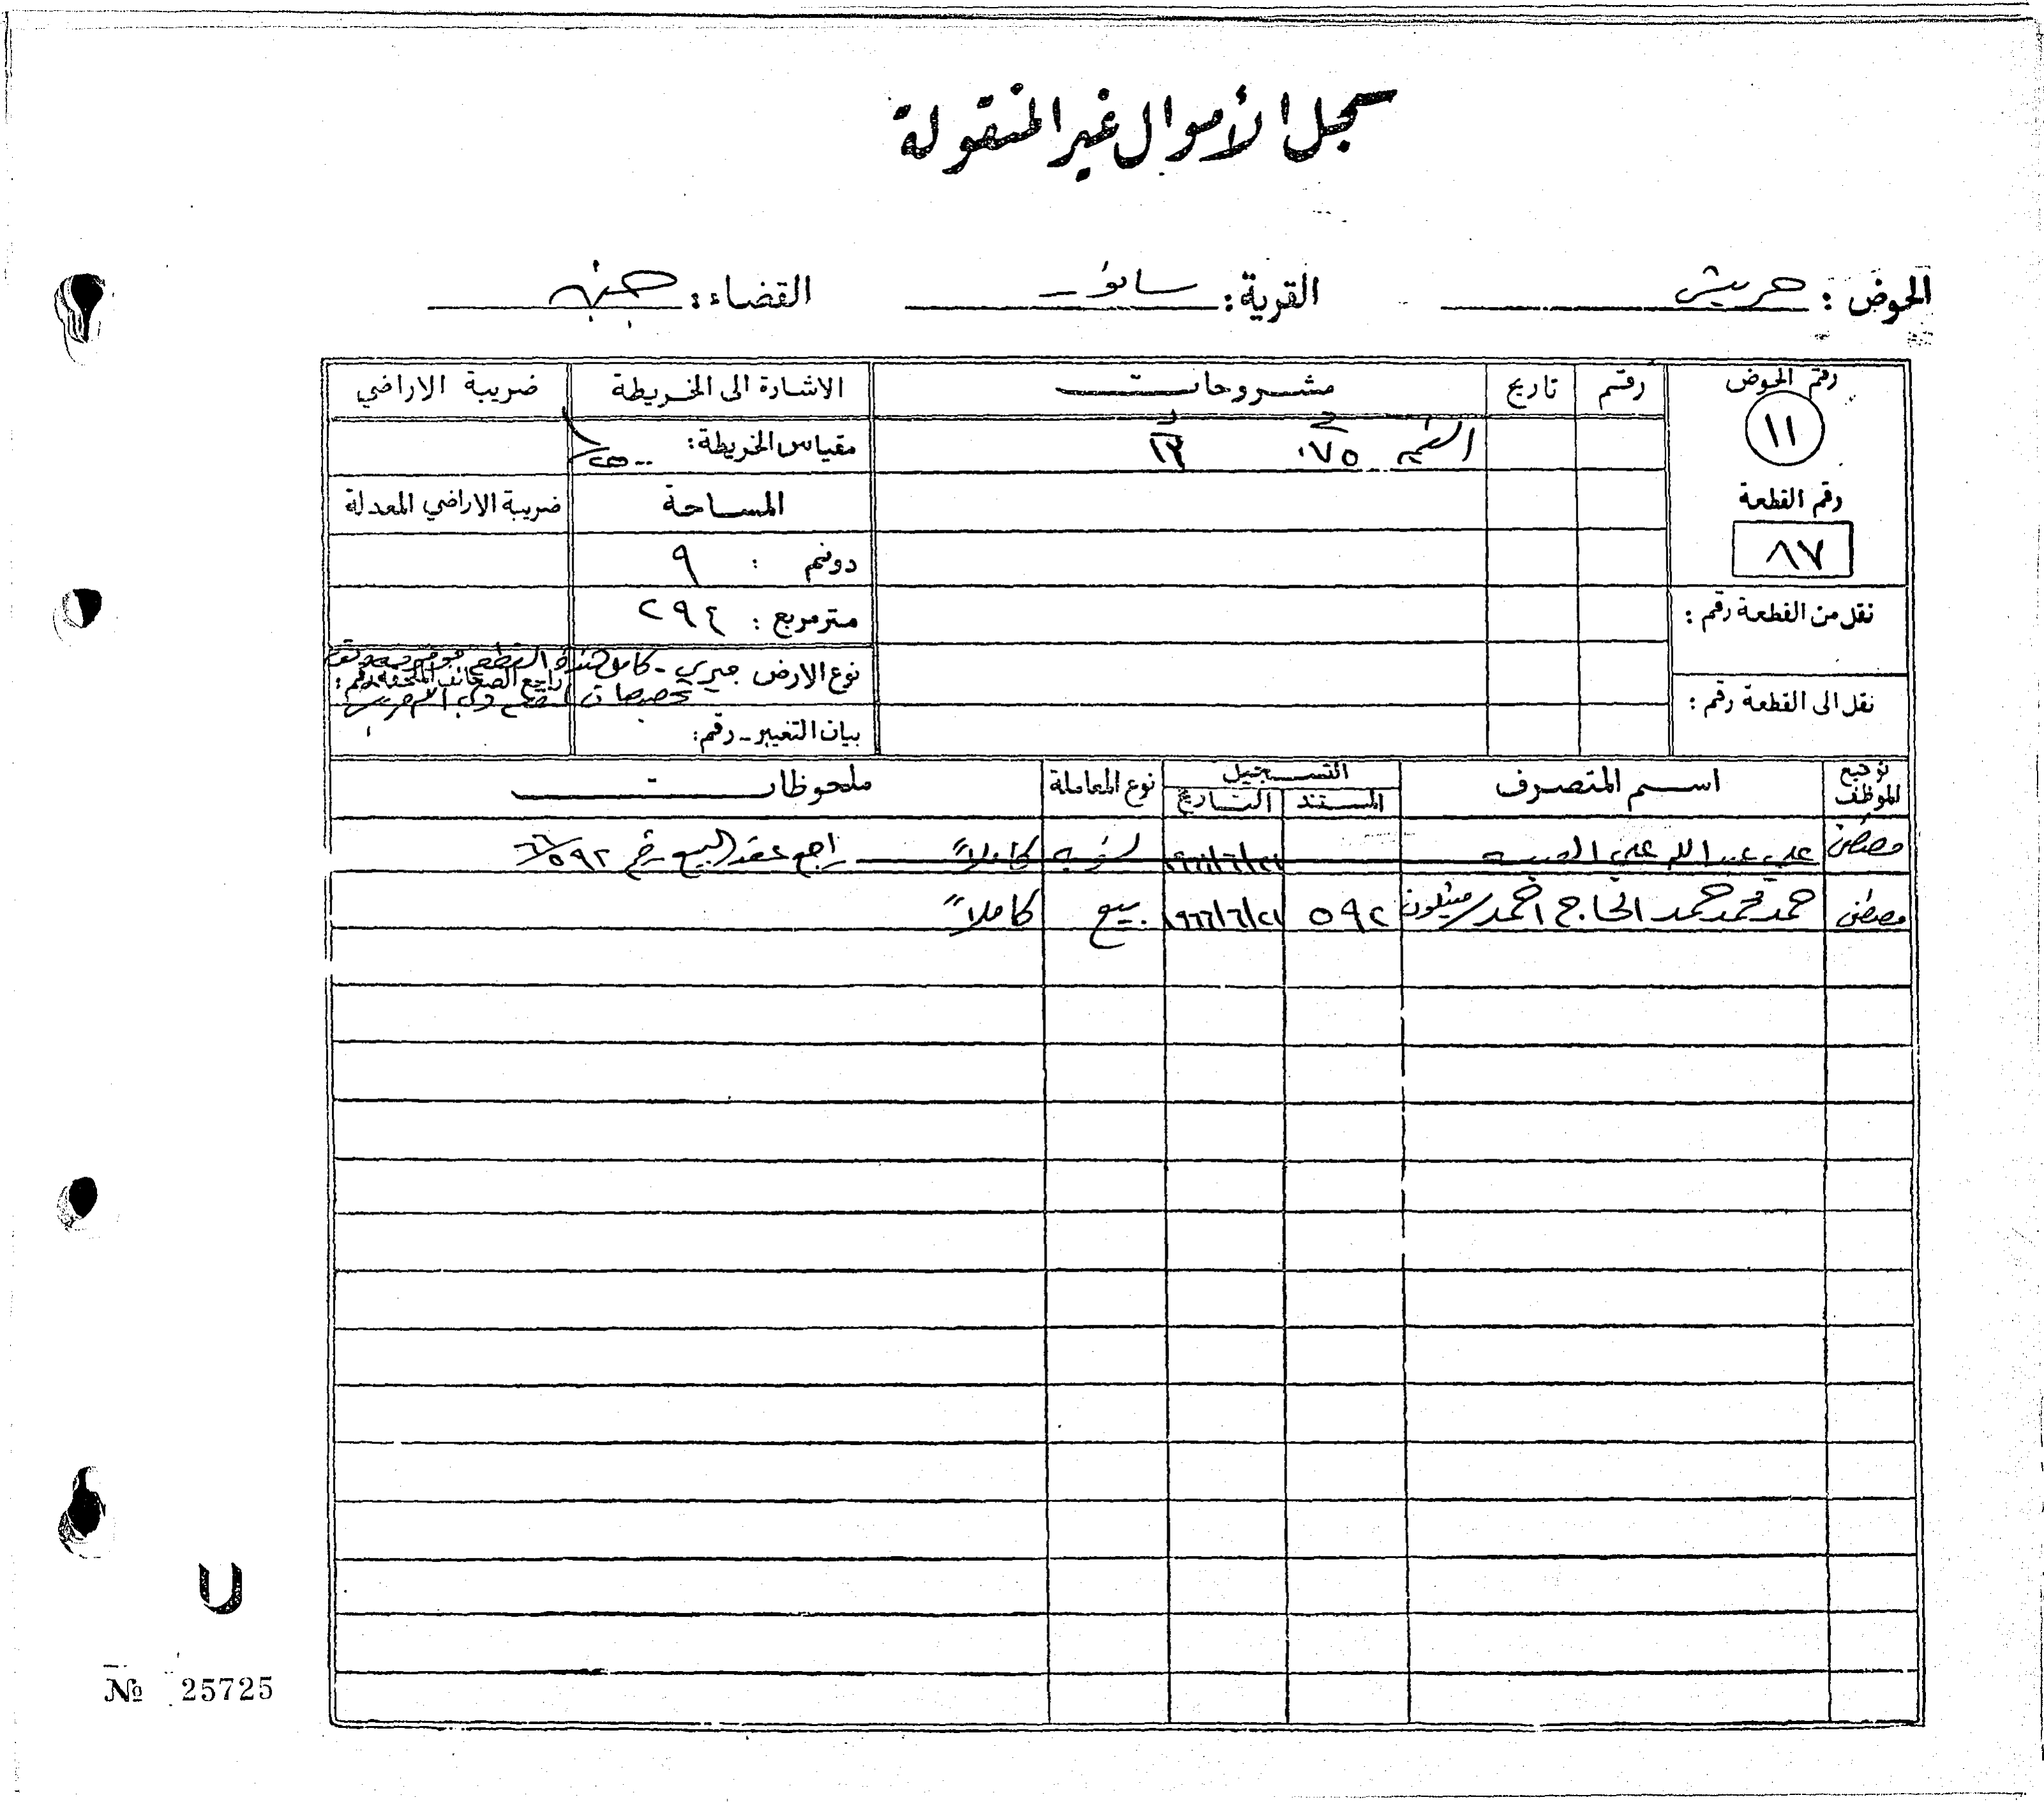 سجل الأموال غير المنقولة
الحوض : حريش القرية : سانور القضاء : جنين
رقم الحوض رقم تاريخ مشروحات الاشارة الى الخريطة ضريبة الاراضي
١١
٠٧٥ مقياس الخريطة :
رقم القطعة المساحة ضريبة الاراضي المعدلة
٨٧ دونم : ٩
نقل من القطعة رقم : متر مربع : ٢٩٤
نوع الارض ميري - كامل هذه القطعة
راجع الصحائف الملحقة رقم :
نقل الى القطعة رقم :
بيان التغيير - رقم :
توقيع الموظف اسم المتصرف التسجيل نوع المعاملة ملحوظات
المستند التاريخ
مصطفى علي عبد الله علي تسوية كاملاً راجع عقد البيع رقم ٥٩٢/٦٦
مصطفى حمد محمد حمد الحاج احمد / ميثلون ٥٩٢ ١٩٦٦/٦/٢١ بيع كاملاً
U
№ 25725